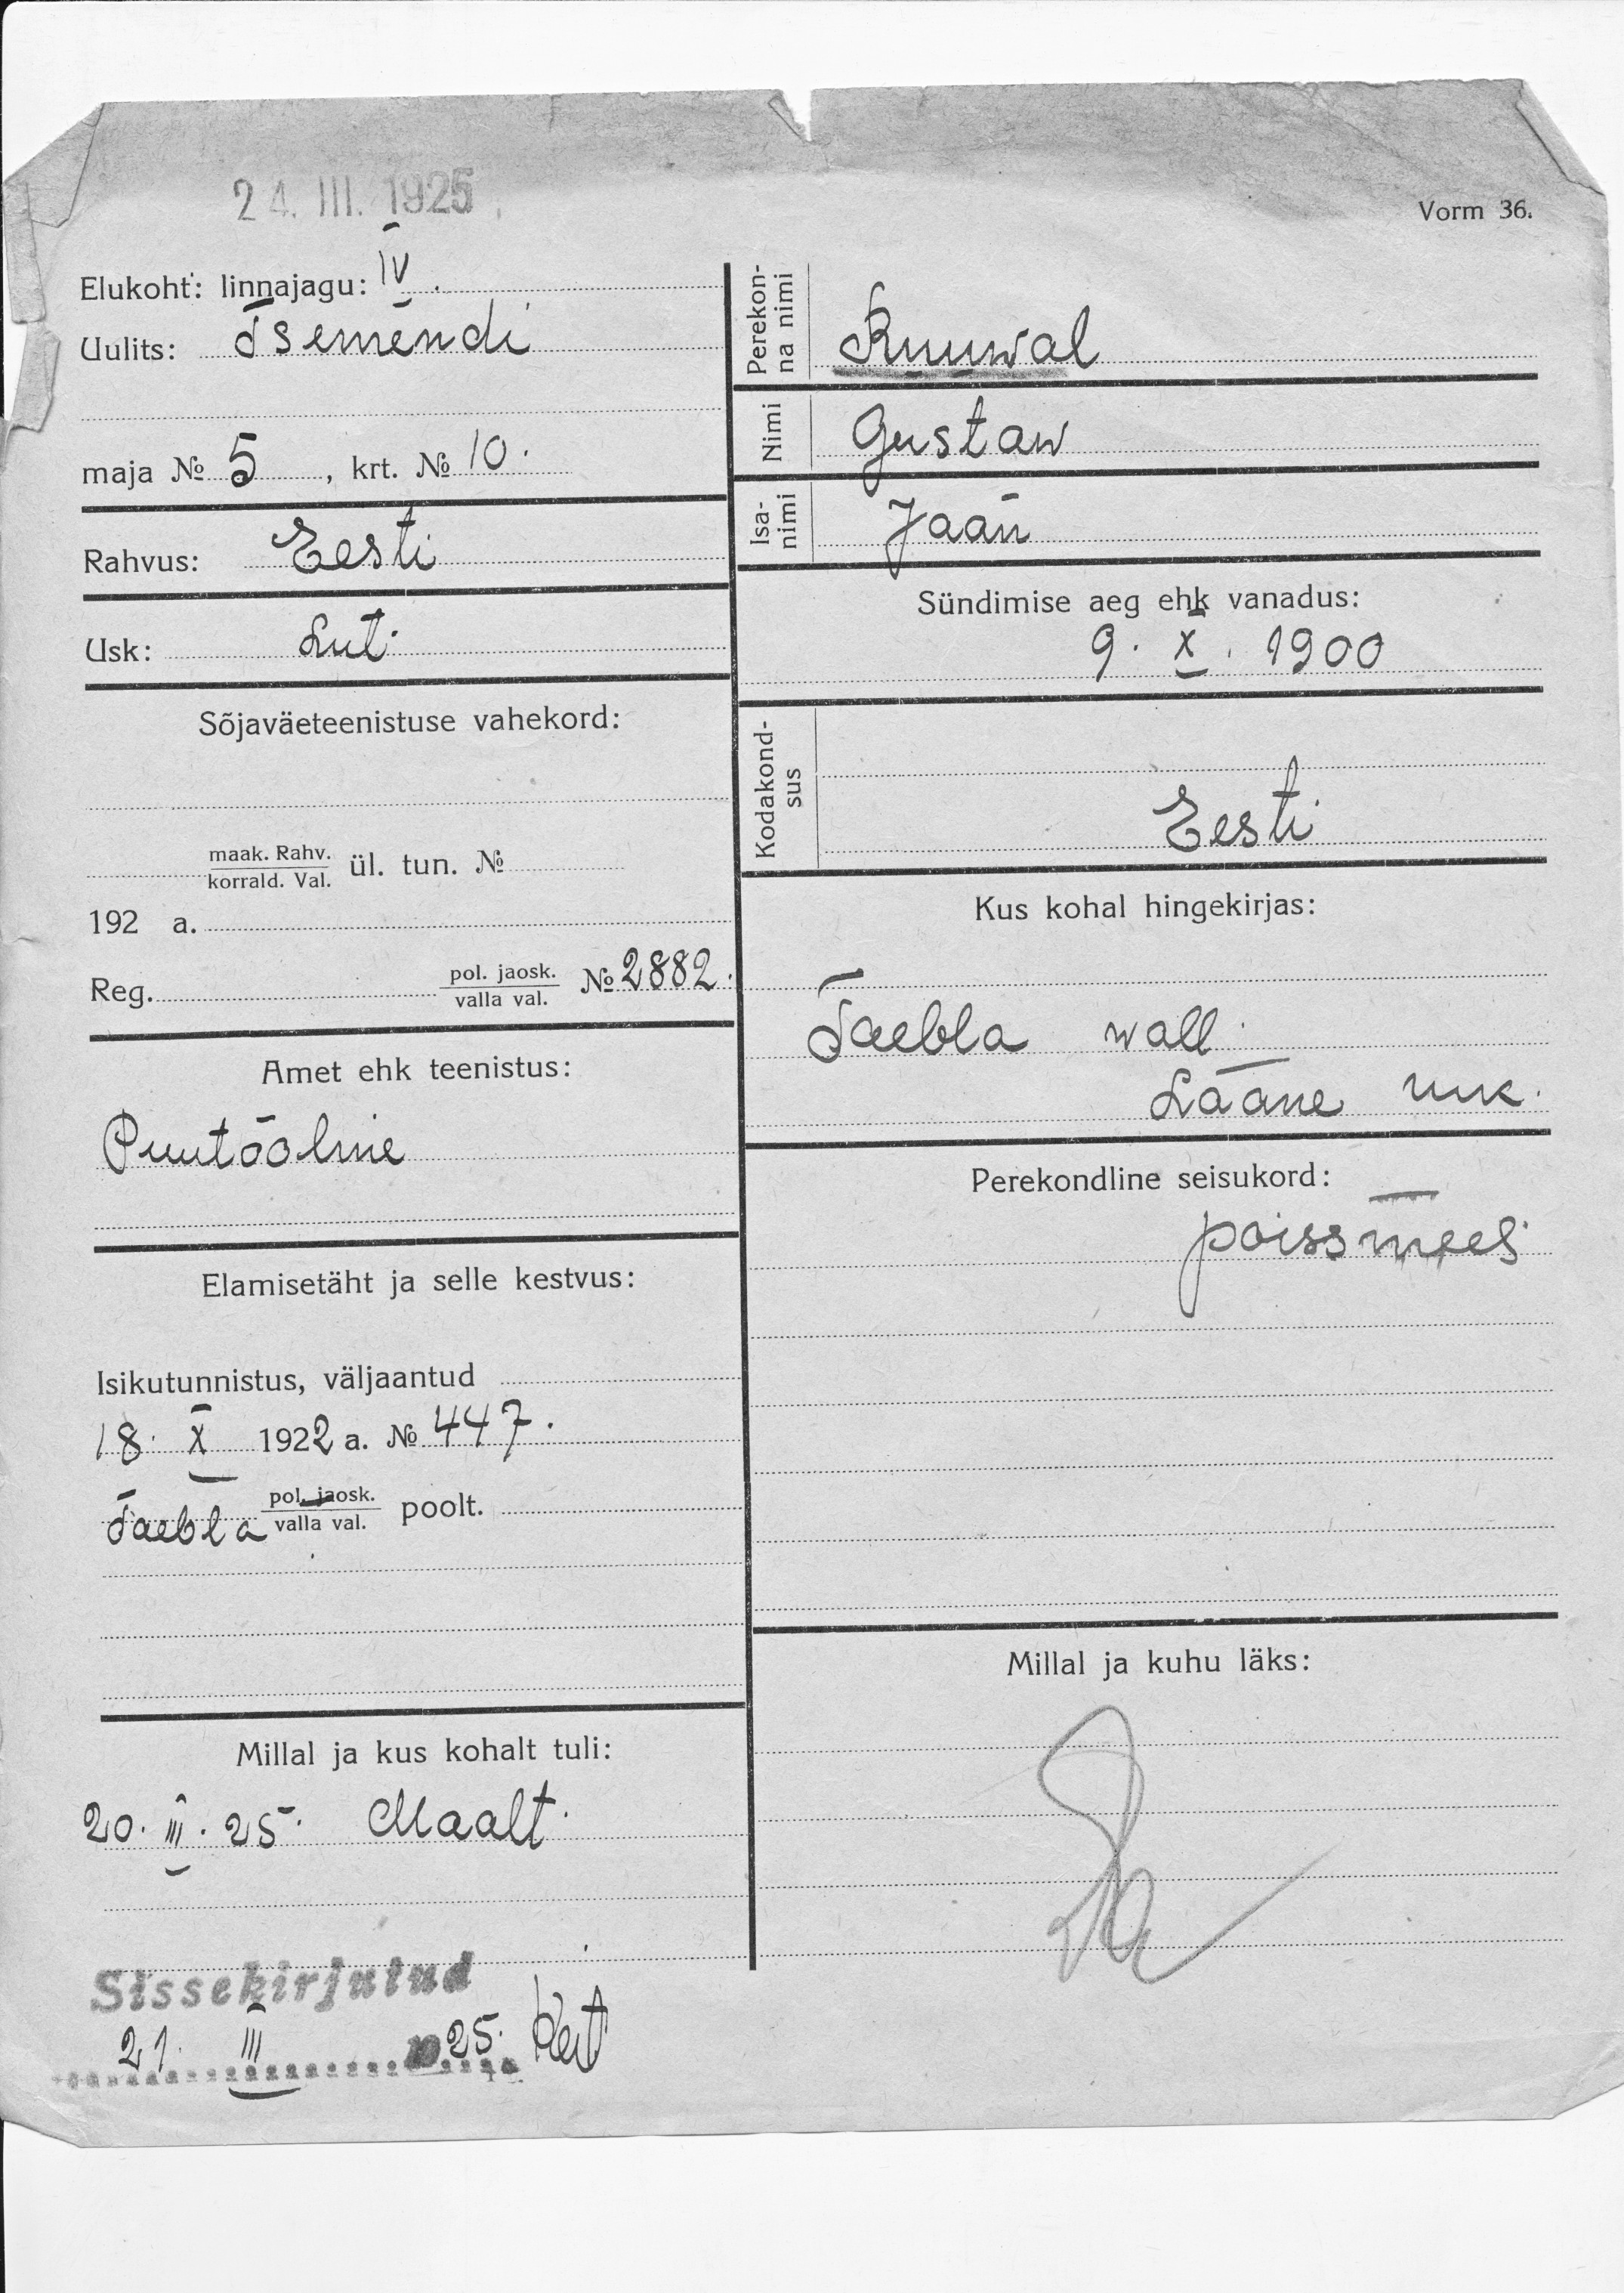 24. III. 1925
Vorm 36.
Elukoht: linnajagu: IV.
Uulits: Tsemendi
maja № 5, krt. № 10.
Rahvus: Eesti
Usk: Lut.
Sõjaväeteenistuse vahekord:
maak. Rahv.
korrald. Val. ül. tun. №
192 a.
Reg. pol. jaosk. № 2882.
valla val.
Amet ehk teenistus:
Puutööline
Elamisetäht ja selle kestvus:
Isikutunnistus, väljaantud
18. X 1922 a. № 447.
Taebla pol. jaosk. poolt.
valla val.
Millal ja kus kohalt tuli:
20. III. 25. Maalt.
Sissekirjutud
21. III 25.
Perekon-
na nimi
Kuuwal
Nimi Gustaw
Isa-
nimi
Jaan
Sündimise aeg ehk vanadus:
9. X. 1900
Kodakond-
sus
Eesti
Kus kohal hingekirjas:
Taebla wall.
Lääne mk.
Perekondline seisukord:
poissmees
Millal ja kuhu läks: